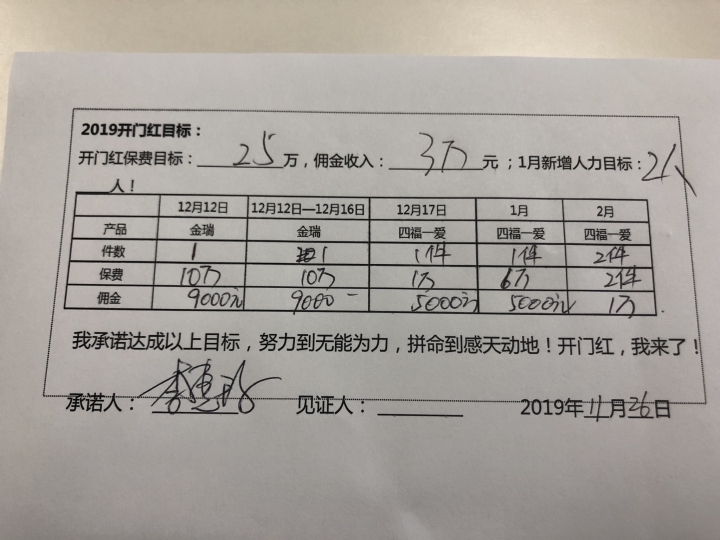 2019开门红目标：
开门红保费目标：25万，佣金收入：3万元；1月新增人力目标：2人
人！
12月12日 12月12日—12月16日 12月17日 1月 2月
产品 金瑞 金瑞 四福一爱 四福一爱 四福一爱
件数 1 1 1件 1件 2件
保费 10万 10万 1万 6万 2件
佣金 9000元 9000 5000元 5000元 1万
我承诺达成以上目标，努力到无能为力，拼命到感天动地！开门红，我来了！
承诺人： 见证人： 2019年11月26日